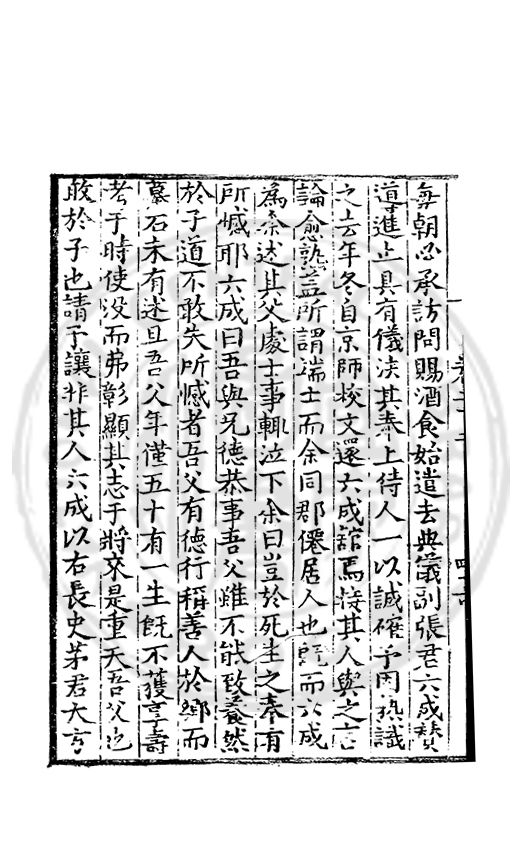 每朝必承訪問賜酒食始遣去典儀副張君六成贊
導進止具有儀法其奉上待人一以誠確予因熟識
之去年冬自京師校文還六成館焉接其人與之言
論愈熟蓋所謂端士而余同郡僊居人也旣而六成
為余述其父處士事輒泣下余曰豈於死生之奉有
所憾耶六成曰吾與兄德恭事吾父雖不能致養然
於子道不敢失所憾者吾父有德行稱善人於鄉而
墓石未有述且吾父年僅五十有一生旣不獲享壽
考于時使没而弗彰顯其志于將來是重夭吾父也
敢於子也請予讓非其人六成以右長史茅君大方